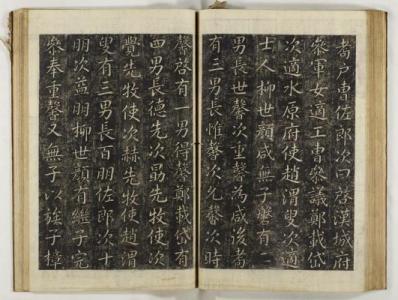 耆戶曹佐郎次曰啓漢城府
參軍女適工曹參議鄭載岱
次適水原府使趙渭叟次適
士人柳世顔咸無子有二
男長世馨次重馨爲咸後耆
有三男長惟馨次允馨次時
馨啓有一男得馨鄭載岱有
四男長德先次勗先牧使次
覺先牧使次赫先牧使趙渭
叟有三男長百朋佐郎次十
朋次益朋柳世顔有繼子完
參奉重馨又無子以姪子樟